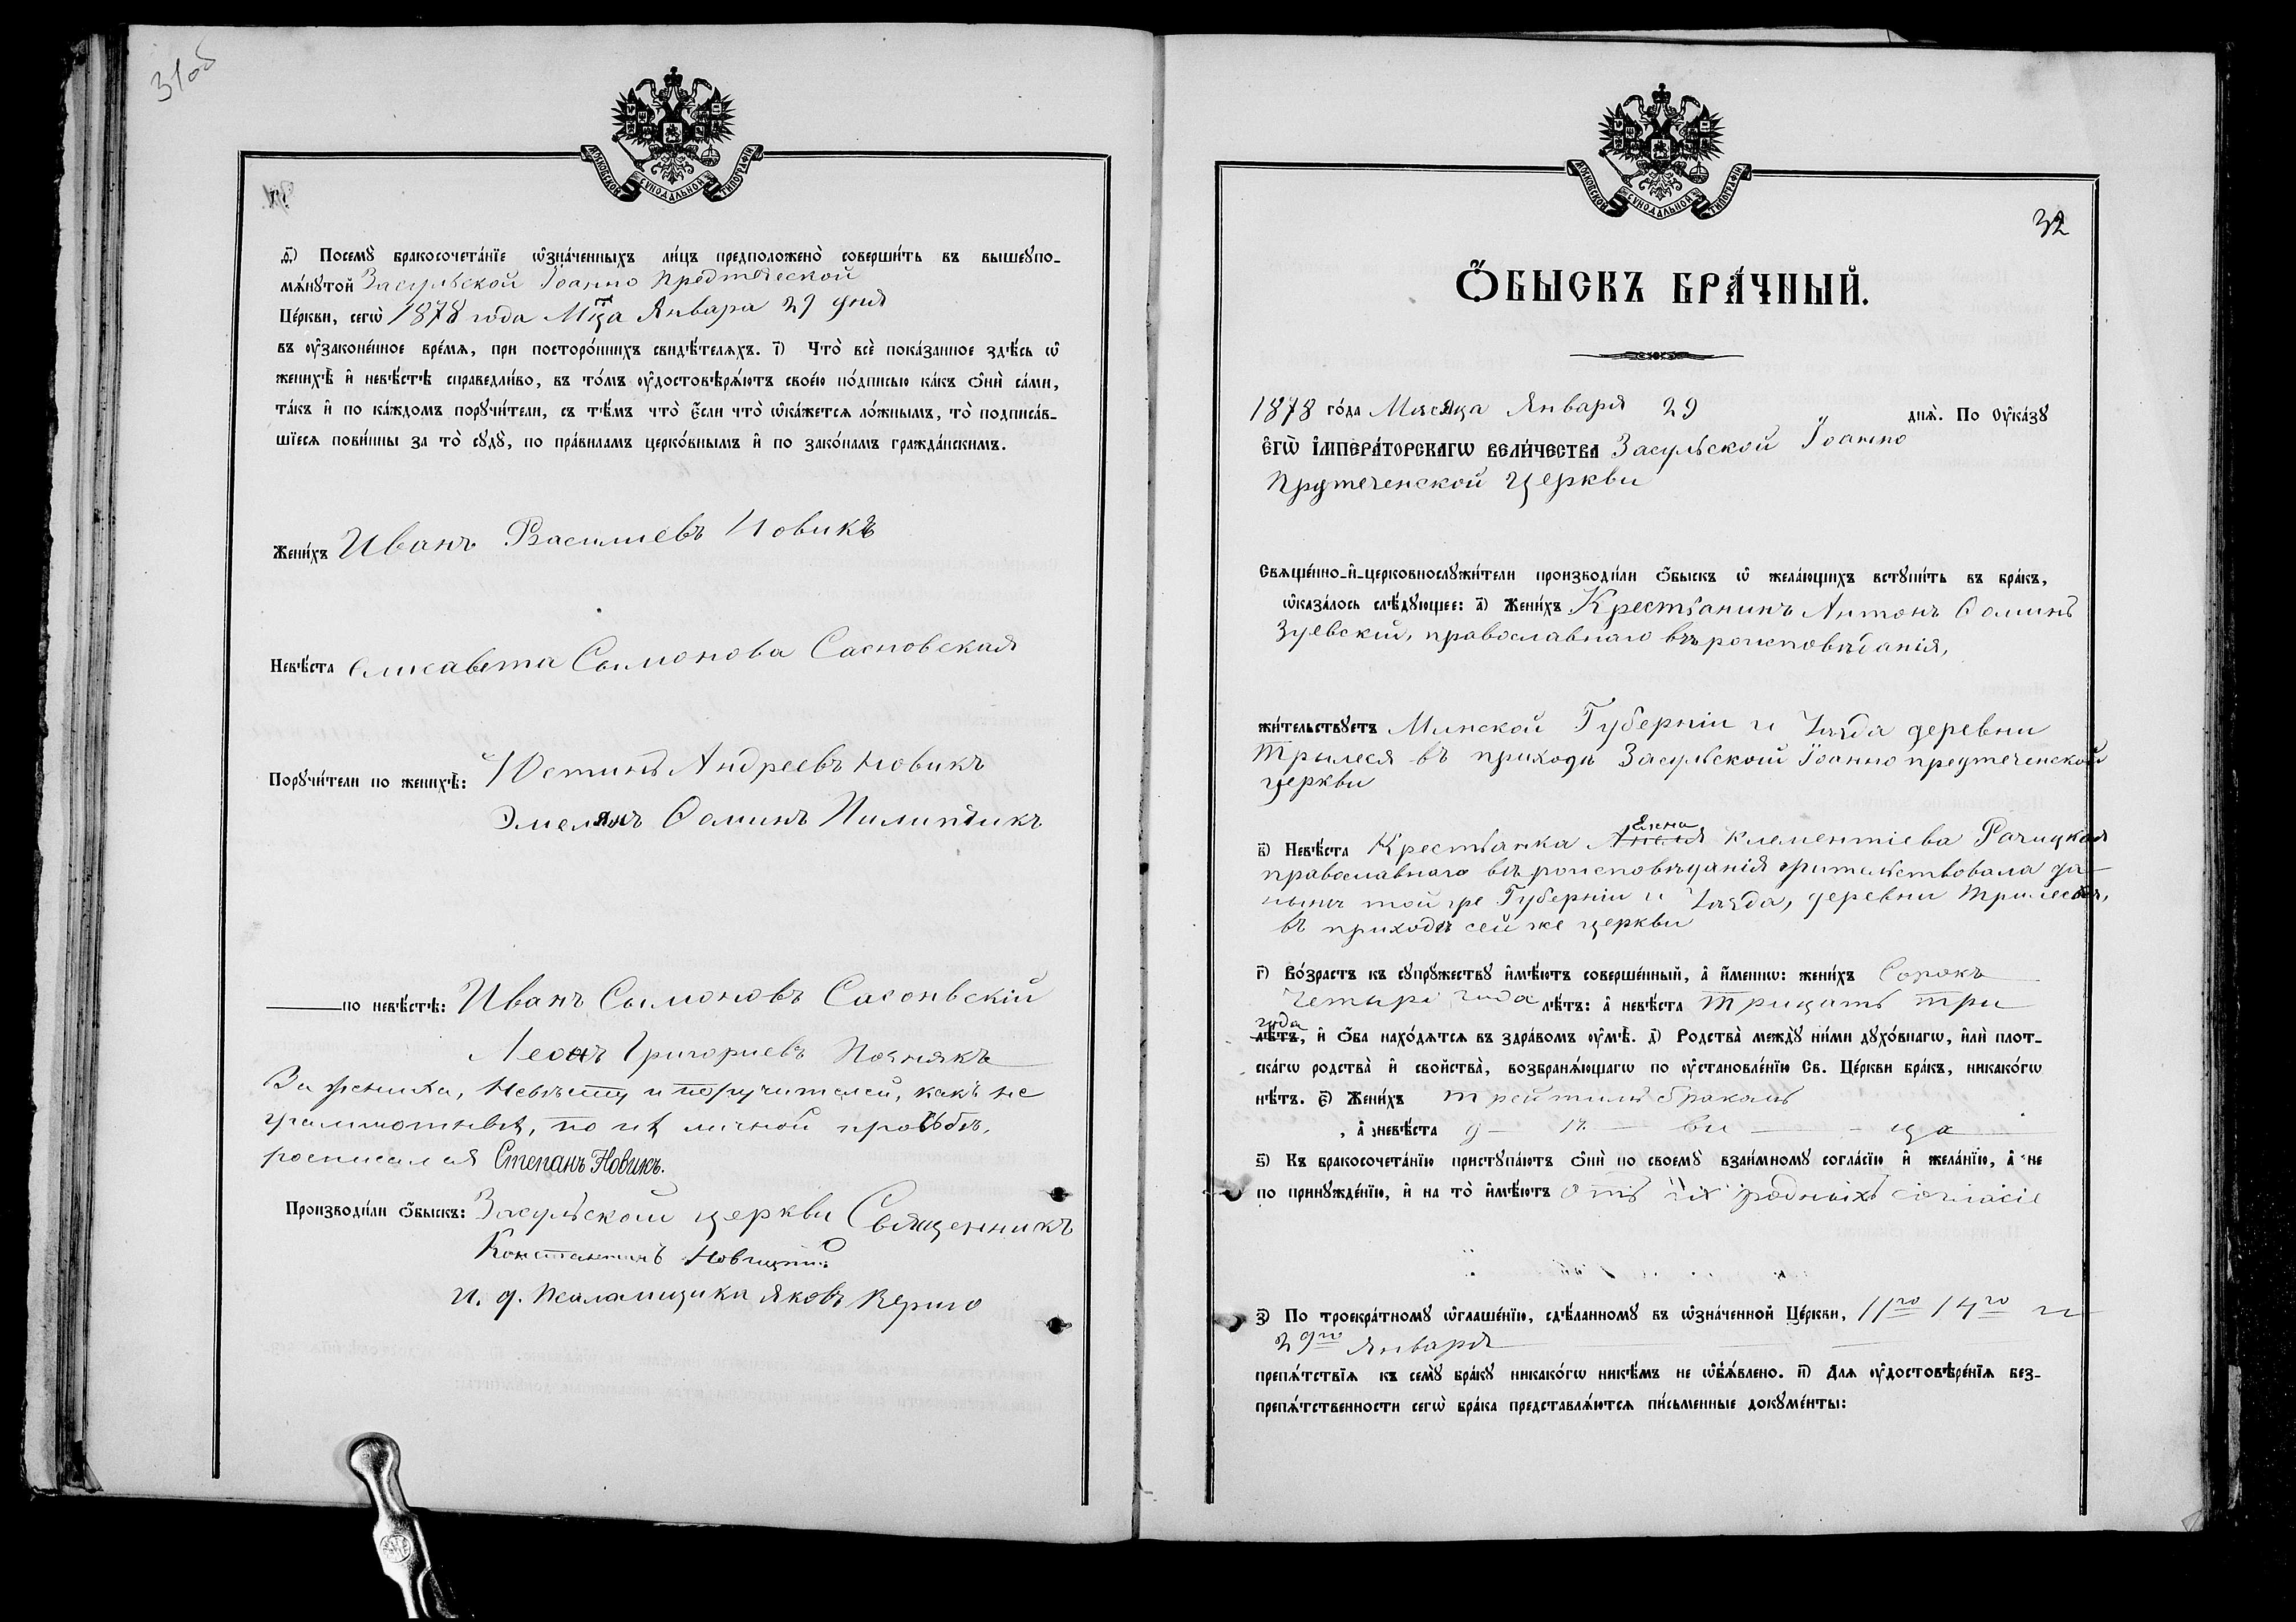 31об
МОСКОВСКОЙ СУНОДАЛЬНОЙ ТИПОГРАФІИ
ѳ҃) Посемꙋ̀ бракосочета́нїе ѡ҆зна́ченныхъ ли́цъ предположено̀ соверши́ть въ вышеꙋпо-
мѧ́нꙋтой Засульской Іоанно Предтеческой
Це́ркви, сегѡ̀ 1878 года Мца Января 29 дня
въ ᲂу҆законе́нное вре́мѧ, при посторо́ннихъ свидѣ́телѧхъ. і҃) Что̀ всѐ пока́занное здѣ́сь ѡ҆
женихѣ̀ и҆ невѣ́стѣ справедли́во, въ то́мъ ᲂу҆достовѣрѧ́ютъ свое́ю по́дписью ка́къ ѻ҆нѝ са́ми,
та́къ и҆ по ка́ждомъ порꙋчи́тели, съ тѣ́мъ что̀ є҆́сли что̀ ѡ҆ка́жетсѧ ло́жнымъ, то̀ подписа́в-
шїесѧ пови́нны за то̀ сꙋдꙋ̀, по пра́виламъ церко́внымъ и҆ по зако́намъ гражда́нскимъ.
Жени́хъ Иванъ Василиевъ Новикъ
Невѣ́ста Елисавета Сымонова Сасновская
Порꙋчи́тели по женихѣ̀: Юстинъ Андреевъ Новикъ
Эмелянъ Ѳоминъ Пилипчикъ
по невѣ́стѣ: Иванъ Сымоновъ Сасоньскій
Леонъ Григориевъ Позняка
За жениха, Невѣсту и поручителей, какъ не
грамотныхъ, по ихъ личной прозьбѣ,
росписался Степанъ Новикъ.
Производи́ли ѻ҆́быскъ: Засульской церкви Священникъ
Константинъ Новицкій
и. д. Псаламщика Яковъ Кернго
МОСКОВСКОЙ СУНОДАЛЬНОЙ ТИПОГРАФІИ
32
Ѻ҆́БЫСКЪ БРА́ЧНЫЙ.
1878 го́да Мѣсяца Января 29 днѧ̀. По ᲂу҆ка́зꙋ
Є҆ГѠ̀ И҆МПЕРА́ТОРСКАГѠ ВЕЛИ́ЧЕСТВА Засульской Іоанно
Прутеченской Церкви
Свѧще́нно-и҆-церковнослꙋжи́тели производи́ли ѻ҆́быскъ ѡ҆ жела́ющихъ встꙋпи́ть въ бра́къ,
ѡ҆каза́лось слѣ́дꙋющее: а҃) Жени́хъ Крестьянинъ Антонъ Ѳоминъ
Зуевскій, православнаго вѣроисповѣданія,
жи́тельствꙋетъ Минской Губерніи и Уѣзда деревни
Трылеся въ приходѣ Засульской Іоанно предтеченской
церкви
в҃) Невѣ́ста Крестьянка Елена Клементіева Рачицкая
православнаго вѣроисповѣданія жительствовала до
нынѣ той же Губерніи и Уѣзда, деревни Трилесья,
въ приходѣ сей же церкви
г҃) Во́зрастъ къ сꙋпрꙋ́жествꙋ и҆мѣ́ютъ соверше́нный, а҆ и҆́меннѡ: жени́хъ Сорокъ
четыре года лѣ́тъ: а҆ невѣ́ста Трицать три
года
лѣ́тъ, и҆ ѻ҆́ба нахо́дѧтсѧ въ здра́вомъ ᲂу҆мѣ̀. д҃) Родства̀ междꙋ̀ ни́ми дꙋхо́внагѡ, и҆лѝ плот-
ска́гѡ родства̀ и҆ сво́йства̀, возбранѧ́ющагѡ по ᲂу҆становле́нїю Св. Це́ркви бра́къ, никако́гѡ
нѣ́тъ. є҃) Жени́хъ третимъ бракомъ
, а҆ невѣ́ста дѣвица
ѕ҃) Къ бракосочета́нїю пристꙋпа́ютъ ѻ҆нѝ по своемꙋ̀ взаи́мномꙋ согла́сїю и҆ жела́нїю, а҆ не
по принꙋжде́нїю, и҆ на то̀ и҆мѣ́ютъ отъ ихъ родныхъ согласіе
з҃) По троекра́тномꙋ ѡ҆глаше́нїю, сдѣ́ланномꙋ въ ѡ҆зна́ченной Це́ркви, 11го 14го и
29го Января
препѧ́тствїѧ къ семꙋ̀ бра́кꙋ никако́гѡ никѣ́мъ не ѡ҆б̾ѧ́влено. и҃) Длѧ ᲂу҆достовѣре́нїѧ без-
препѧ́тственности сегѡ̀ бра́ка представлѧ́ютсѧ пи́сьменные докꙋме́нты: